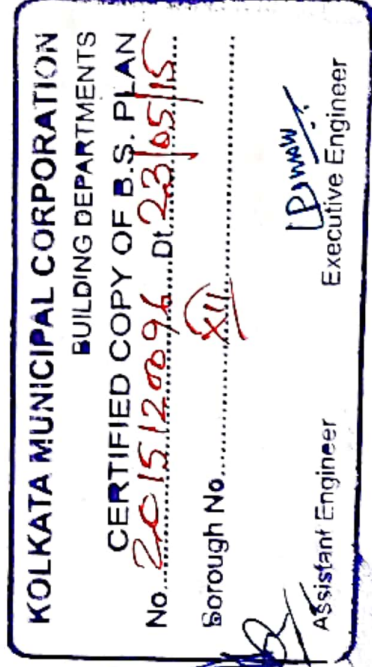 KOLKATA MUNICIPAL CORPORATION
BUILDING DEPARTMENTS
CERTIFIED COPY OF B.S. PLAN
No. 2015120096 Dt. 23/05/15
Borough No. XII
Assistant Engineer Executive Engineer